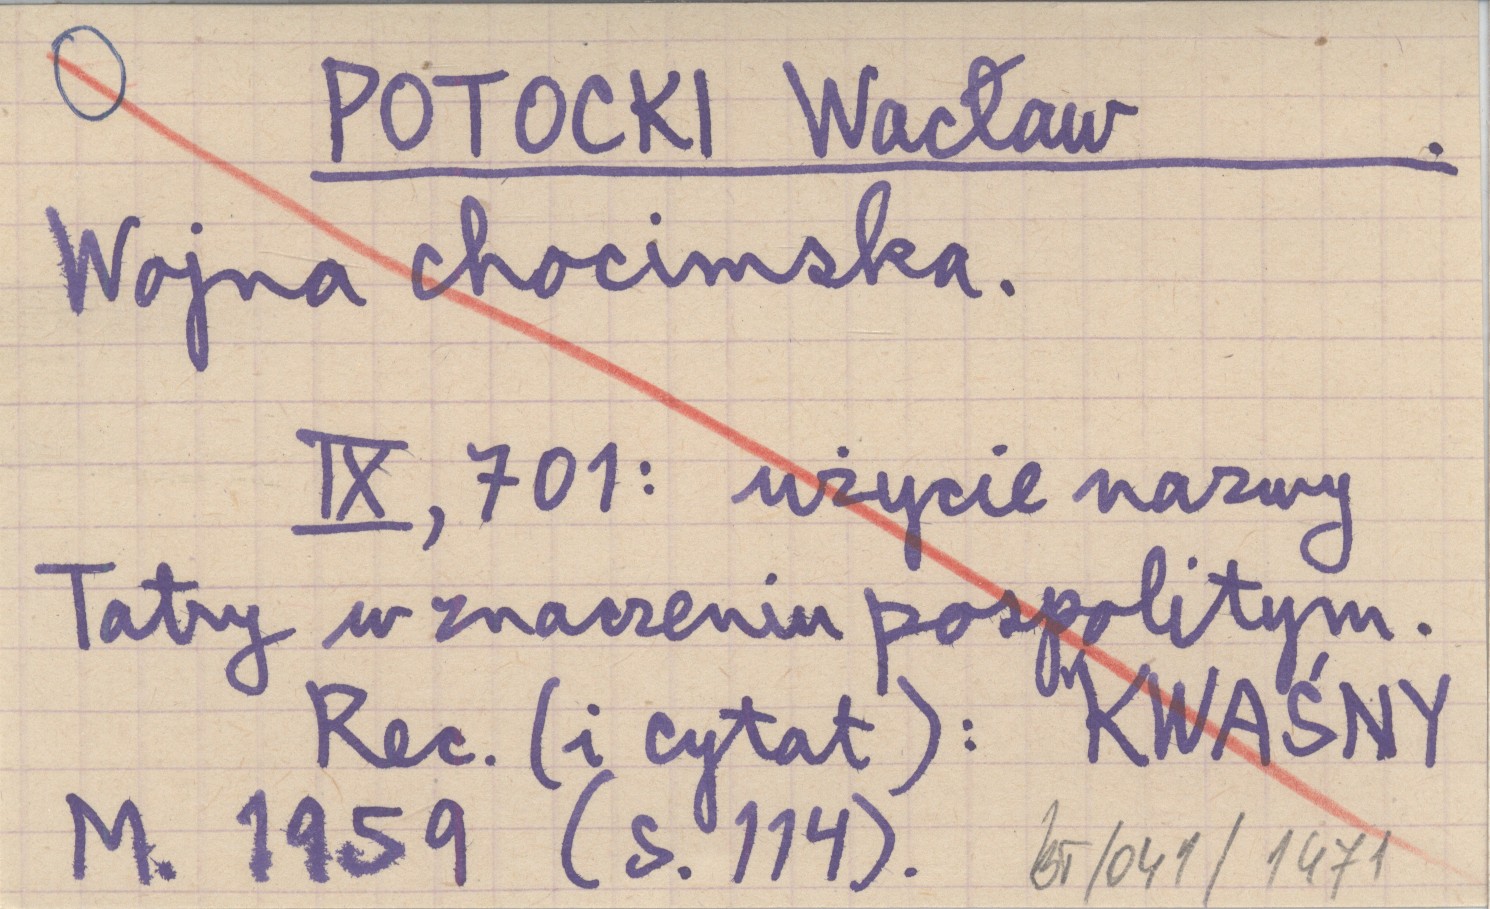 POTOCKI Wacław .
Wojna chocimska.
IX, 701: użycie nazwy
Tatry w znaczeniu pospolitym.
Rec. (i cytat): KWAŚNY
M. 1959 (s. 114).
/041/ 1471